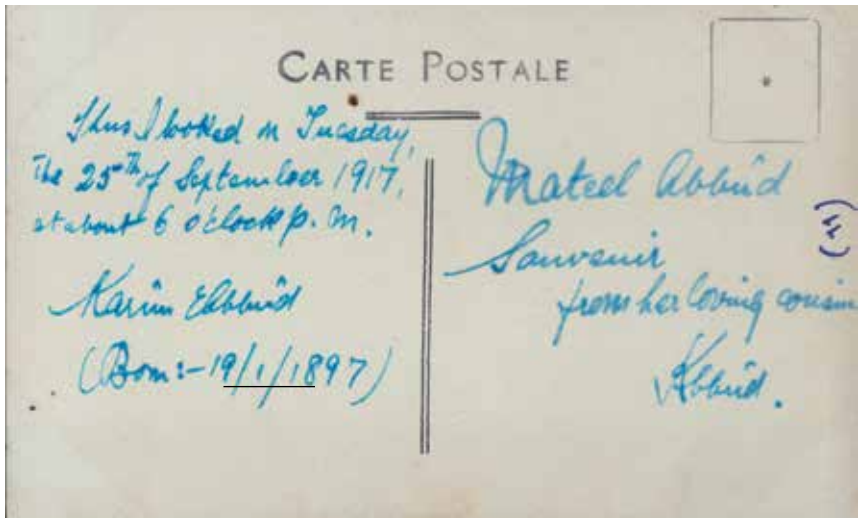 CARTE POSTALE
Thus I looked on Tuesday,
The 25th of September 1917,
at about 6 o'clock p.m.
Karim E Abbûd
(Born:-19/1/1897)
Mateel Abbûd
Souvenir
from her loving cousin
KAbbûd.